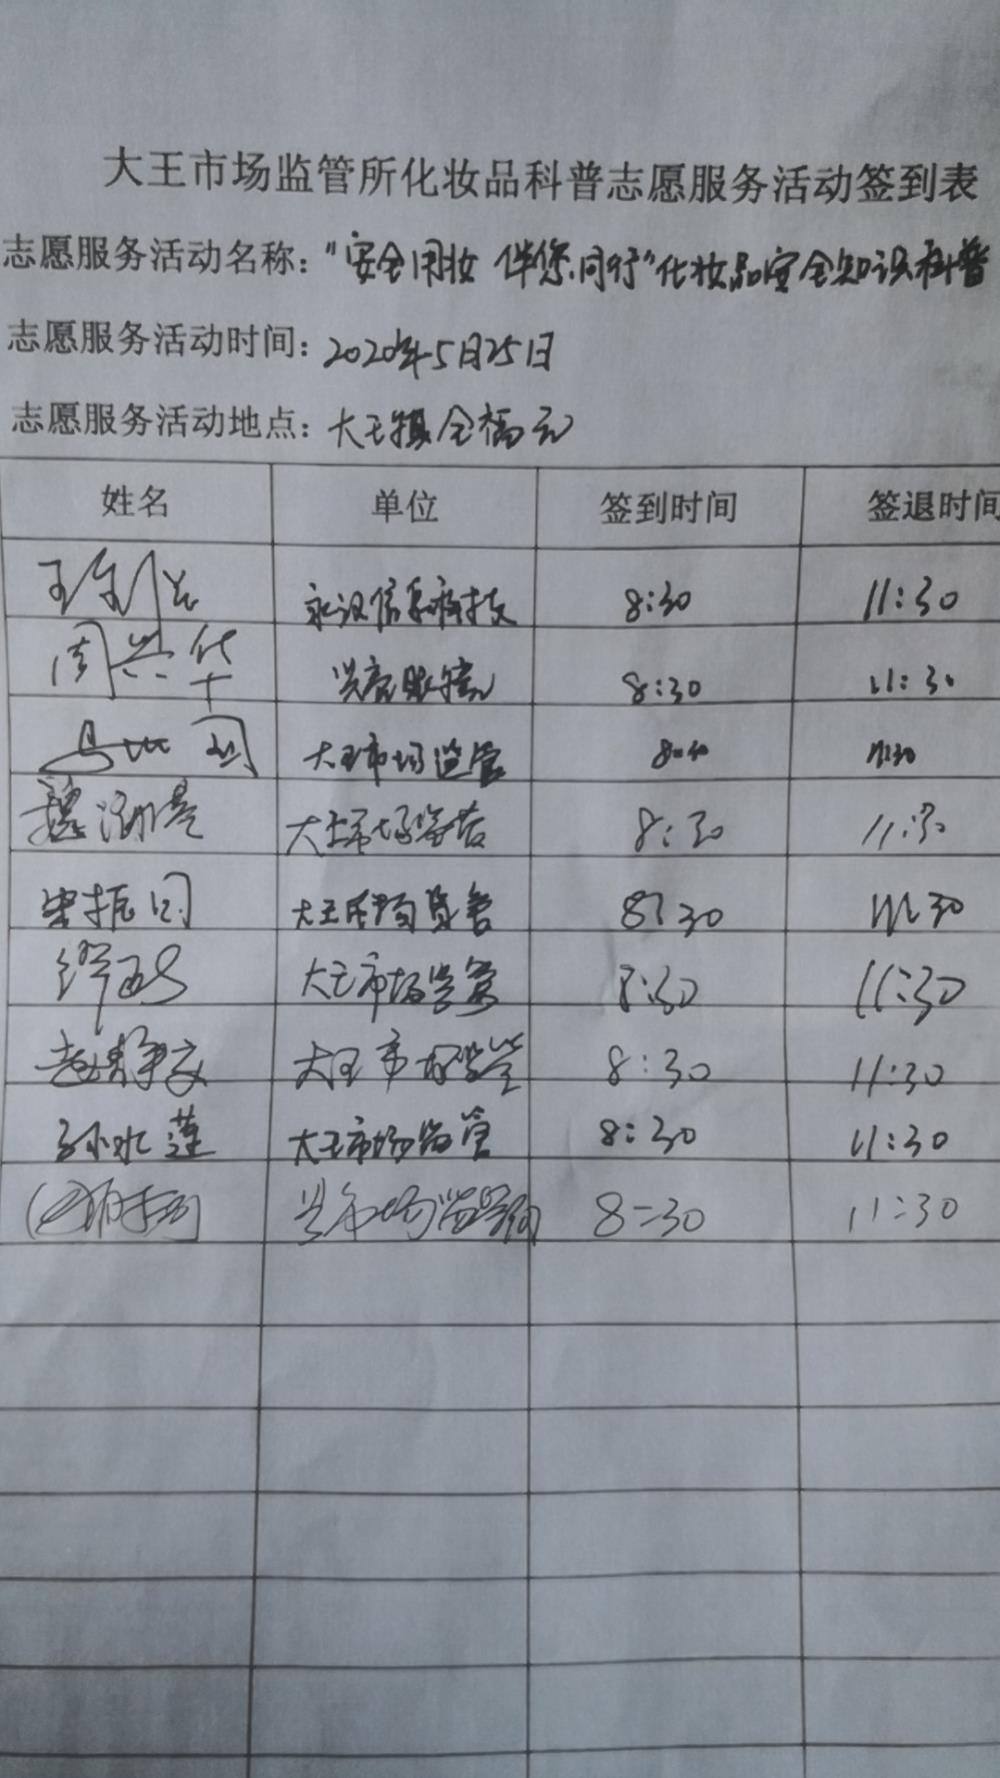 大王市场监管所化妆品科普志愿服务活动签到表
志愿服务活动名称："安全用妆 伴您同行"化妆品安全知识科普
志愿服务活动时间：2020年5月25日
志愿服务活动地点：大王镇全福元
姓名 单位 签到时间 签退时间
8:30 11:30
周兴华 8:30 11:30
大王市场监管 11:30
魏 大王市场监管 8:30 11:30
宋振同 大王市场监管 8:30 11:30
大王市场监管 8:30 11:30
赵静文 大王市场监管 8:30 11:30
孙水莲 大王市场监管 8:30 11:30
市场监督 8:30 11:30